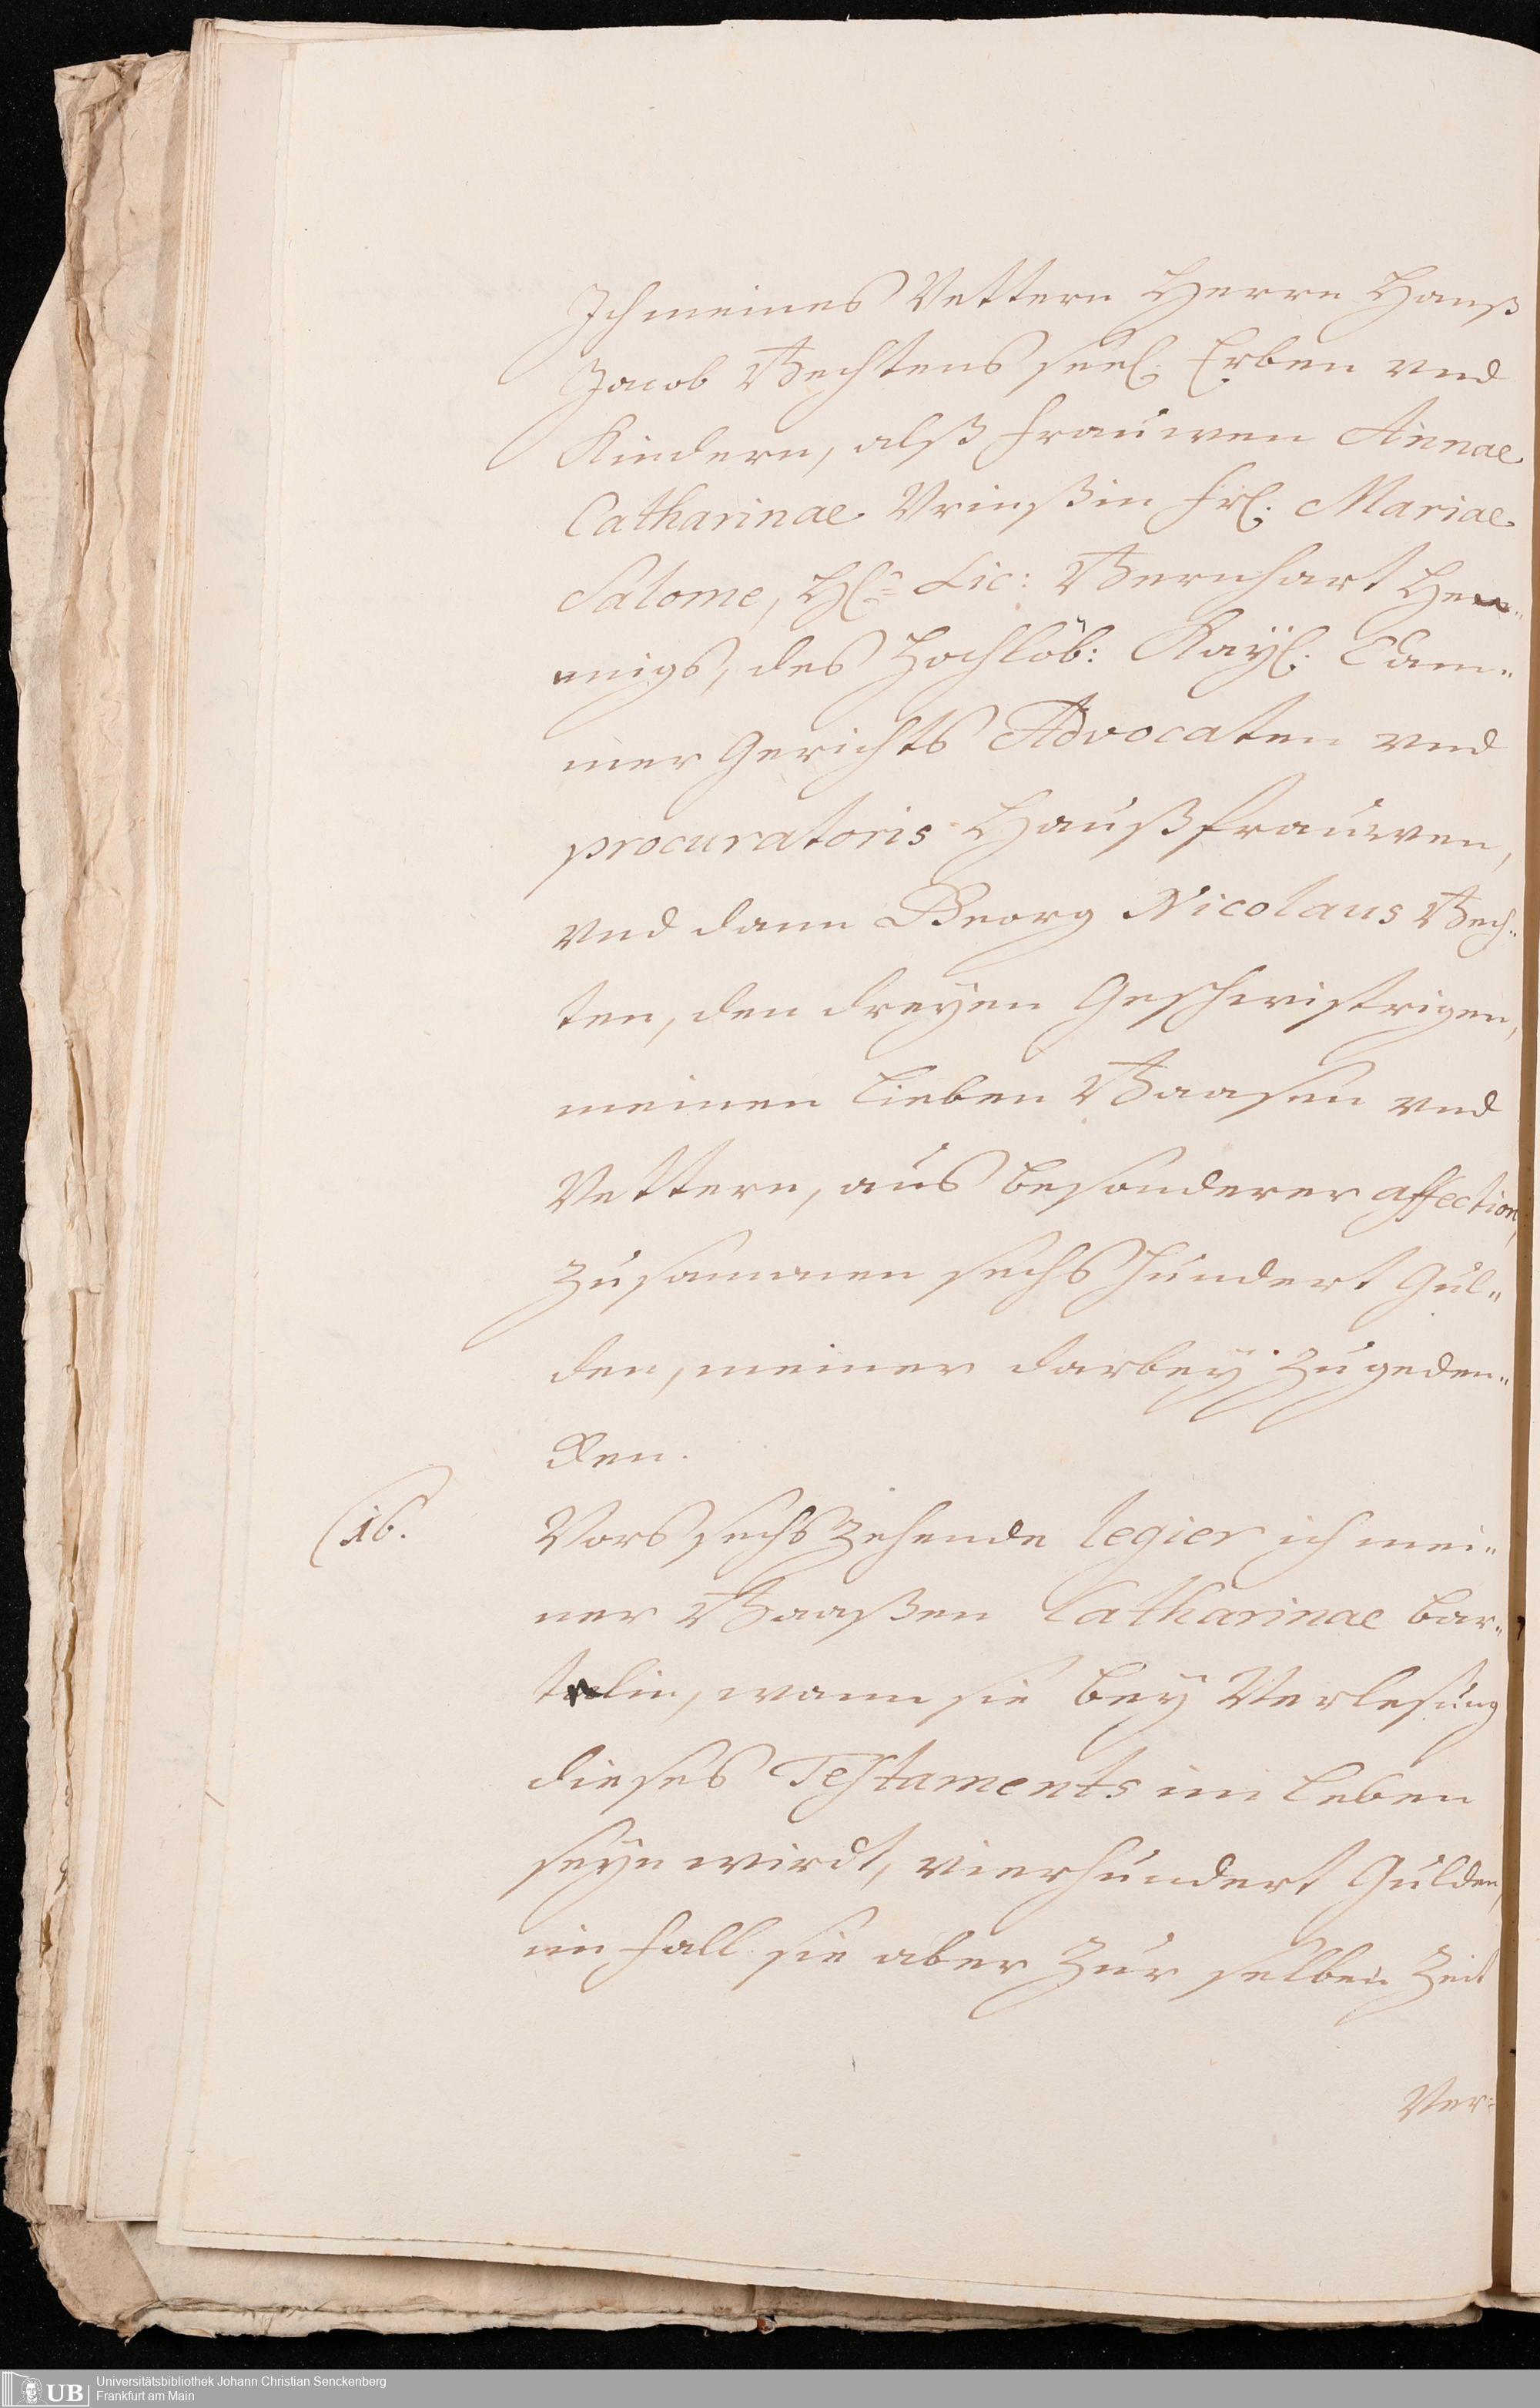 Ich meines Vettern Herrn Hanß
Jacob Bechtens seel. Erben vnd
Kindern, alß Frauwen Annae
Catharinae Vrinßin Frl. Mariae
Salome, Hl. Lic: Bernhart Hen¨
nigs, des Hochlöb: Kayl. Cam¨
mer Gerichts Advocaten vnd
procuratoris Haußfrauwen,
vnd dann Georg Nicolaus Bech¨
ten, den dreyen Geschwistrigen,
meinen lieben Baasen vnd
Vettern, aus besonderer affection,
zusammen sechs hundert Gul¨
den, meiner darbey zugeden¨
cken.
16. Vors sechszehende legier ich mei¨
ner Baaßen Catharinae Bar¨
telin, wann sie bey Verlesung
dieses Testaments im leben
seyn wirdt, vierhundert Gulden,
im fall sie aber zur selben Zeit
Ver=
UB
Universitätsbibliothek Johann Christian Senckenberg
Frankfurt am Main